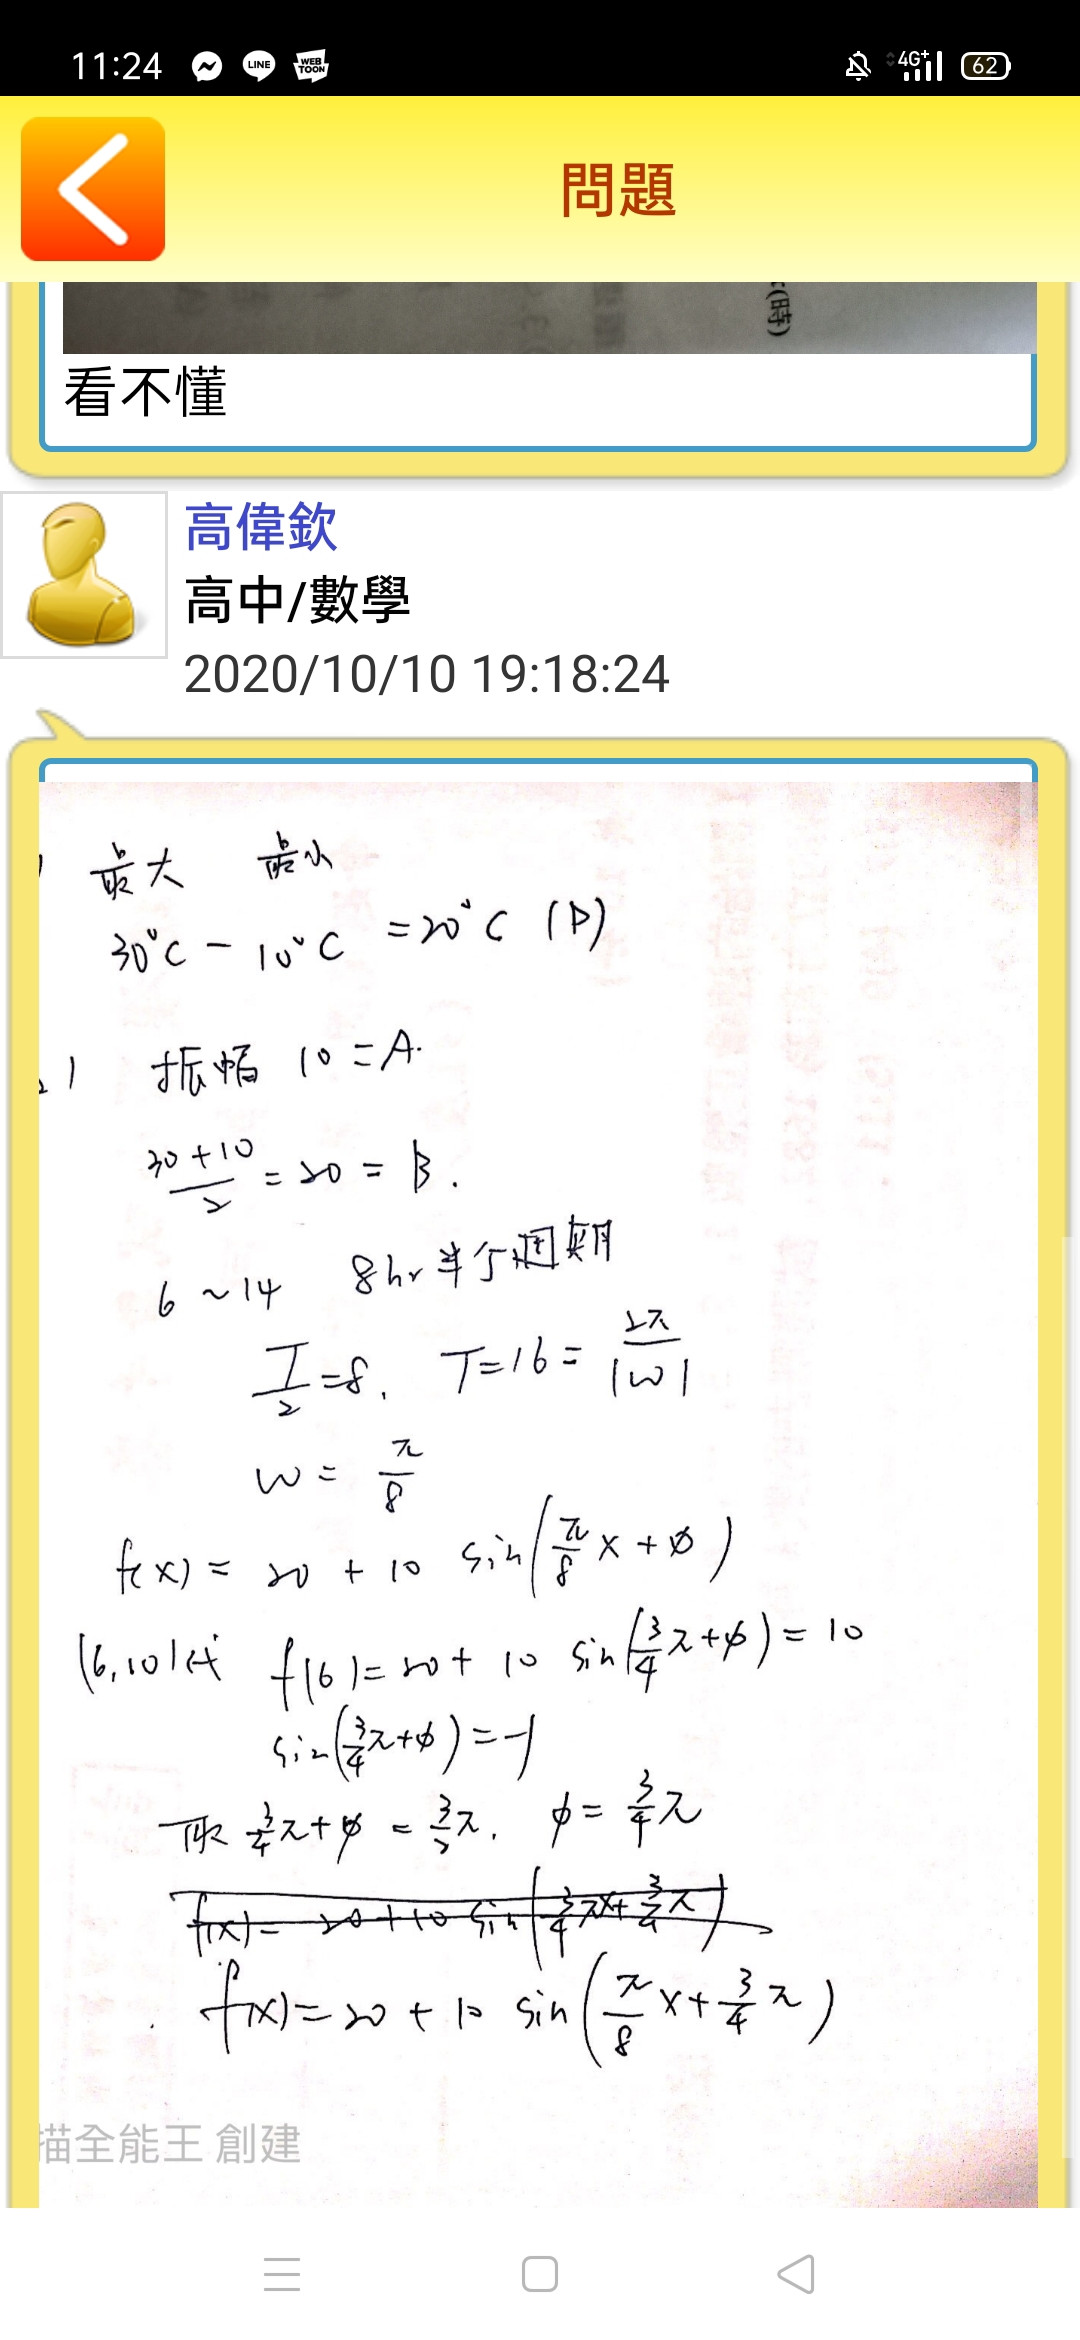 11:24 LINE WEB TOON 4G+ 62
問題
(時)
看不懂
高偉欽
高中/數學
2020/10/10 19:18:24
最大 最小
30°C - 10°C = 20°C (D)
振幅 10 = A.
30+10/2 = 20 = B.
6 ~ 14 8hr 半個週期
T/2 = 8, T = 16 = 2π/|w|
w = π/8
f(x) = 20 + 10 sin(π/8 x + φ)
(6,10)代 f(6) = 20 + 10 sin(3/4 π + φ) = 10
sin(3/4 π + φ) = -1
取 3/4 π + φ = 3/2 π, φ = 3/4 π
f(x) = 20 + 10 sin(3/4 πx + 3/4 π)
f(x) = 20 + 10 sin(π/8 x + 3/4 π)
描全能王 創建